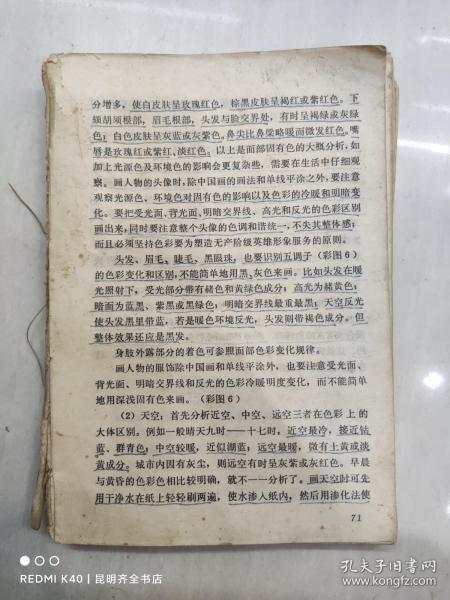 分增多，使白皮肤呈玫瑰红色，棕黑皮肤呈褐红或紫红色。下
颏胡须根部，眉毛根部，头发与脸交界处，有时呈褐绿或灰绿
色；白色皮肤呈灰蓝或灰紫色。鼻尖比鼻梁略暖而微发红色。嘴
唇是玫瑰红或紫红、淡红色。以上是面部固有色的大概分析，如
加上光源色及环境色的影响会更复杂些，需要在生活中仔细观
察。画人物的头像时，除中国画的画法和单线平涂之外，要注意
观察光源色、环境色对固有色的影响以及色彩的冷暖和明暗变
化。要把受光面、背光面、明暗交界线、高光和反光的色彩区别
画出来，同时要注意整个头像的色调和谐统一，不失其整体感；
而且必须坚持色彩要为塑造无产阶级英雄形象服务的原则。
头发、眉毛、睫毛、黑眼珠，也要识别五调子（彩图6）
的色彩变化和区别，不能简单地用黑、灰色来画。比如头发在暖
光照射下，受光部分带有赭色和黄绿色成分；高光为赭黄色；
暗面为蓝黑、紫黑或黑绿色；明暗交界线最重最黑；天空反光
使头发黑里带蓝，若是暖色环境反光，头发则带褐色成分。但
整体效果还应是黑发。
身肢外露部分的着色可参照面部色彩变化规律。
画人物的服饰除中国画和单线平涂外，也要注意受光面、
背光面、明暗交界线和反光的色彩冷暖明度变化，而不能简单
地用深浅固有色来画。（彩图6）
（2）天空：首先分析近空、中空、远空三者在色彩上的
大体区别。例如一般晴天九时——十七时，近空最冷，接近钴
蓝、群青色；中空较暖，近似湖蓝；远空最暖，微有土黄或淡
黄成分。城市内因有灰尘，则远空有时呈灰紫或灰红色。早晨
与黄昏的色彩色相比较明确，就不一一分析了。画天空时可先
用干净水在纸上轻轻刷两遍，使水渗入纸内，然后用渗化法使
71
REDMI K40 | 昆明齐全书店
孔夫子旧书网
www.kongfz.com